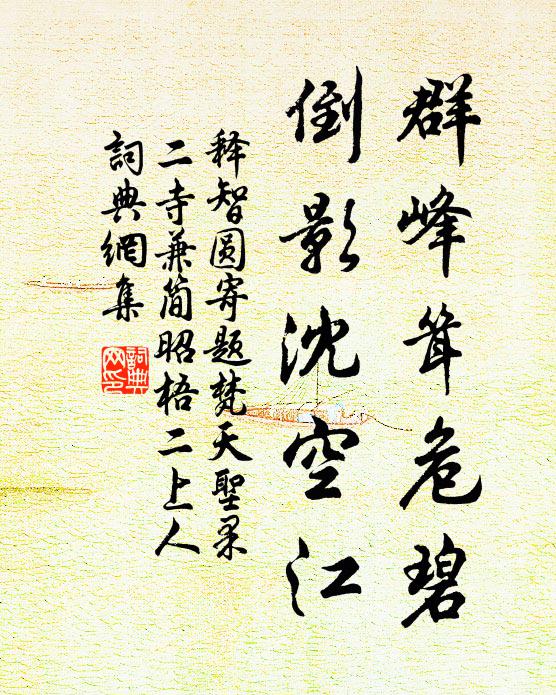 群峰耸危碧
倒影沈空江
释智圆寄题梵天聖果
二寺兼简昭梧二上人
詞典網集
詞典
网印